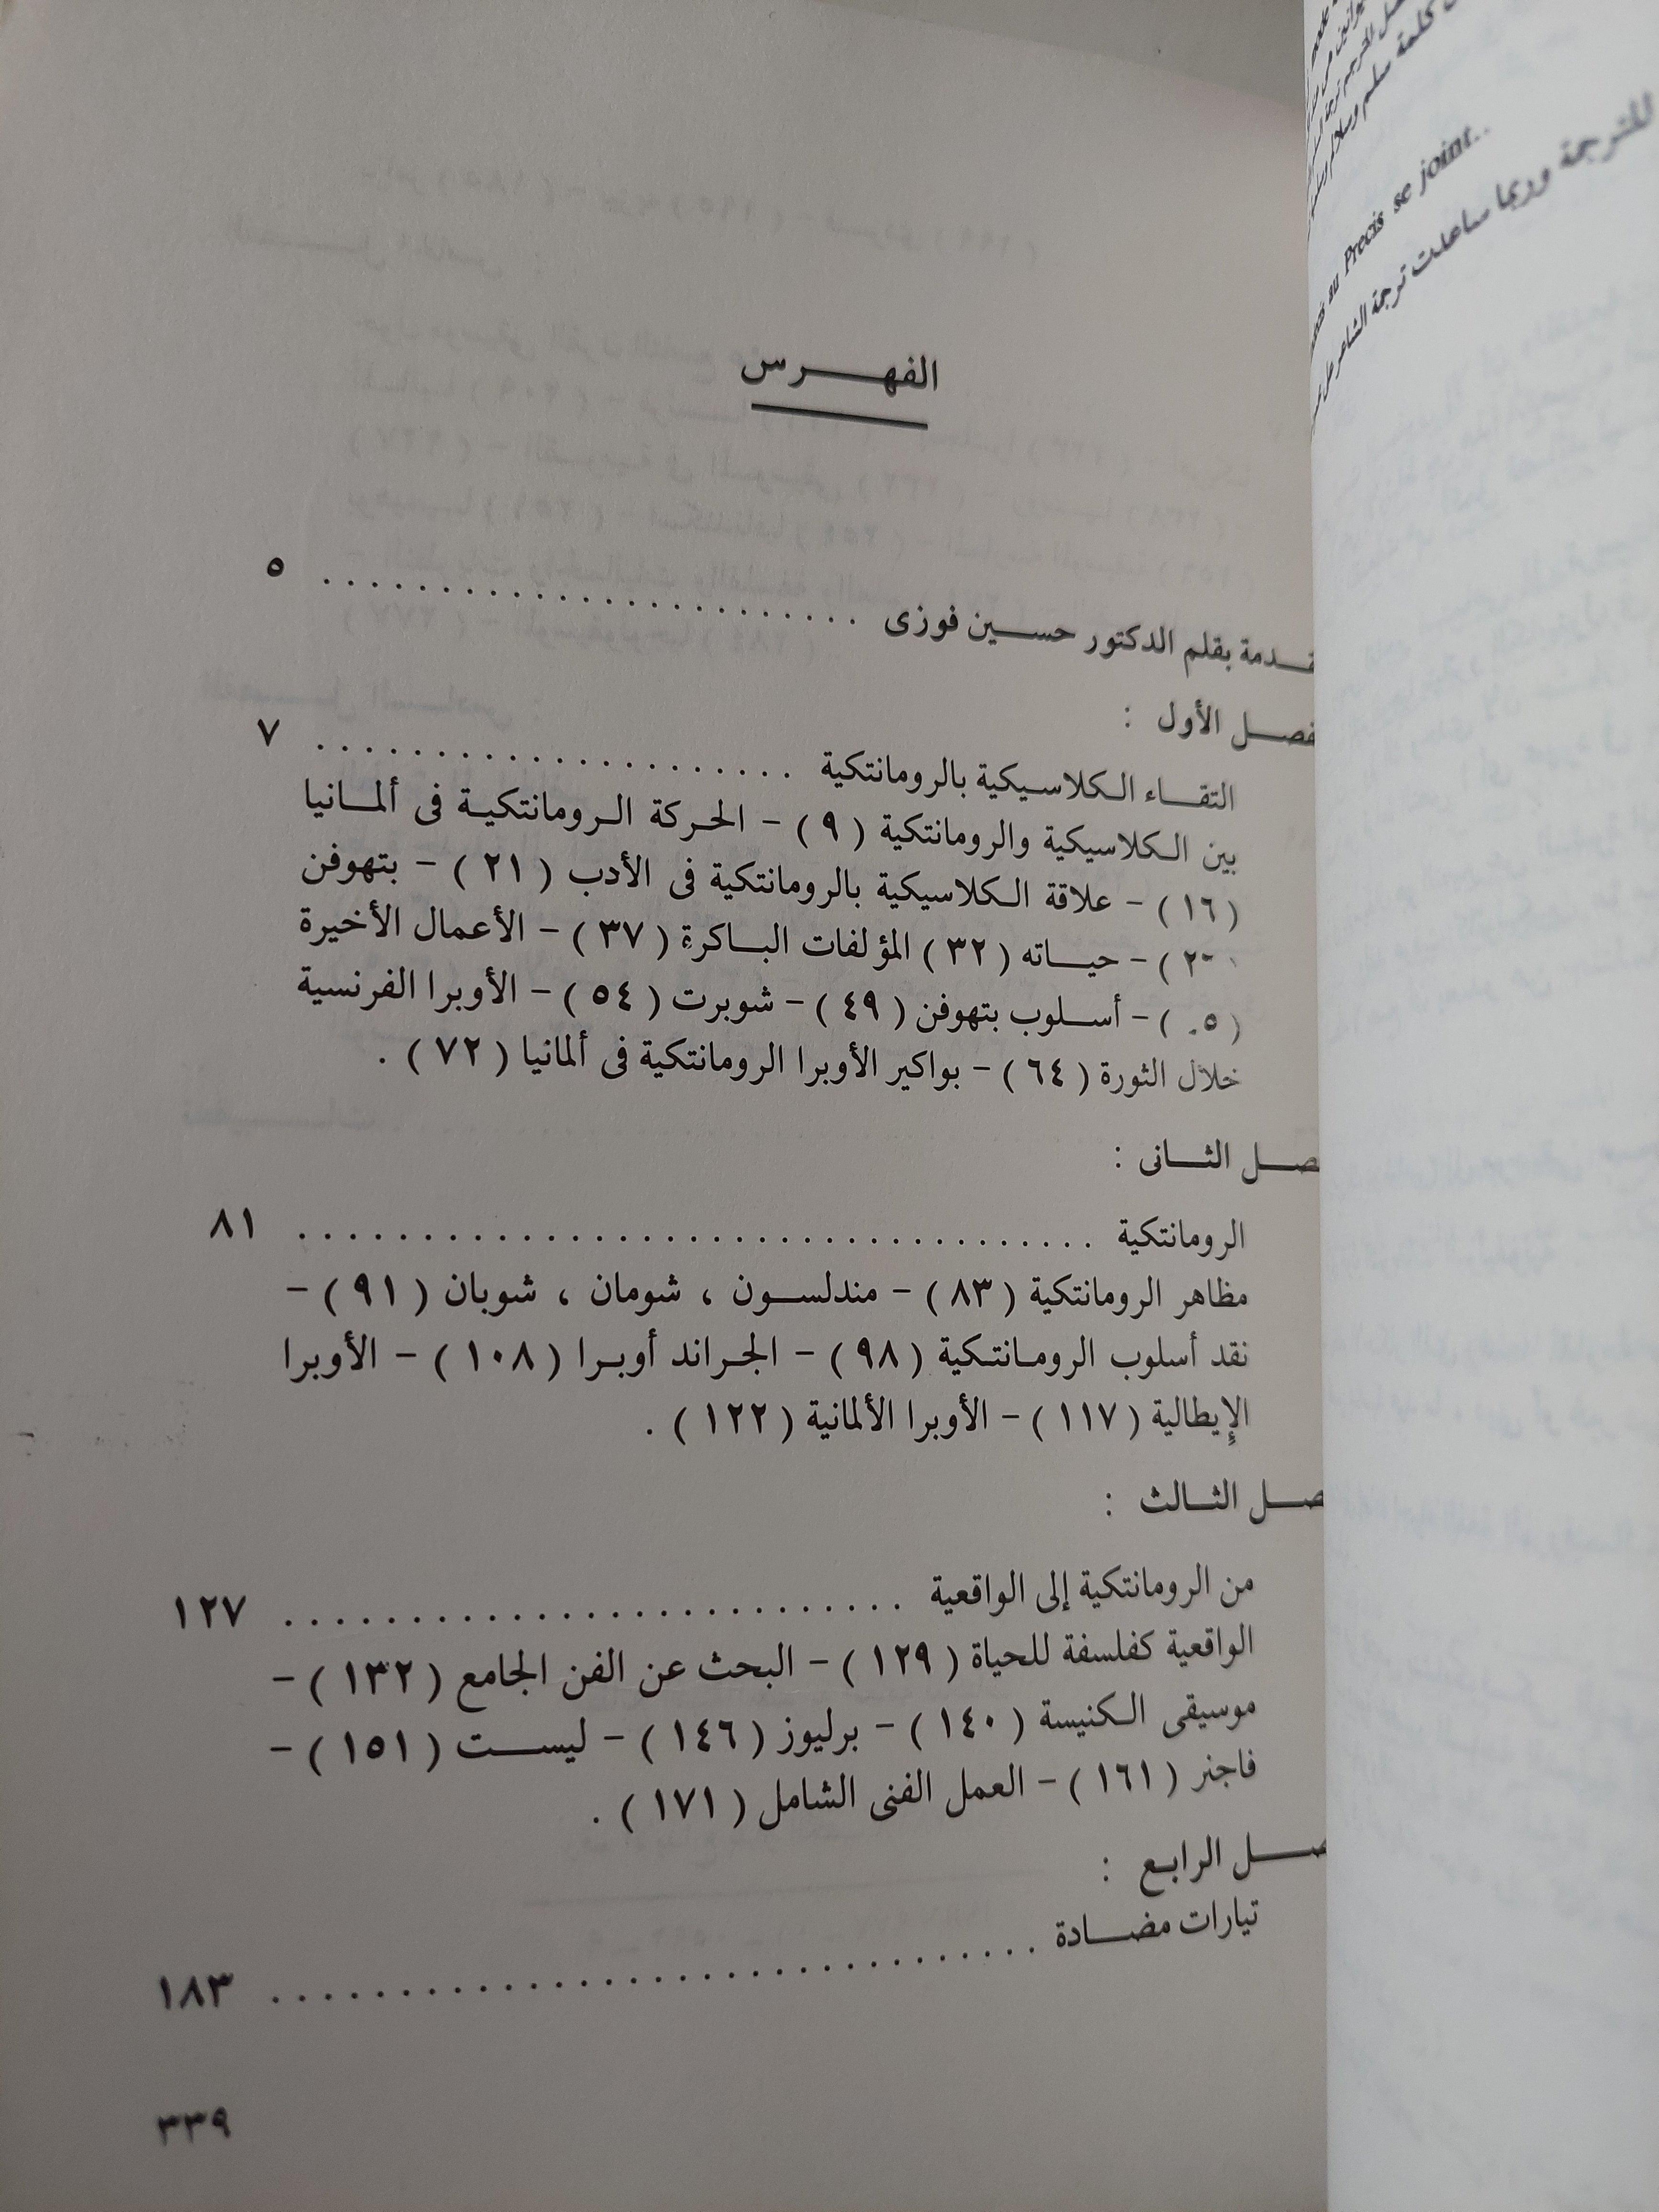 الفهرس
بقلم الدكتور حسين فوزى . . . . . . . . . . . . . . . . . . . . . . ٥
الأول :
التقاء الكلاسيكية بالرومانتكية . . . . . . . . . . . . . . . . . . . . ٧
بين الكلاسيكية والرومانتكية ( ٩ ) – الحركة الرومانتكية فى ألمانيا
( ١٦ ) – علاقة الكلاسيكية بالرومانتكية فى الأدب ( ٢١ ) – بتهوفن
– حياته ( ٣٢ ) المؤلفات الباكرة ( ٣٧ ) – الأعمال الأخيرة
– أسلوب بتهوفن ( ٤٩ ) – شوبرت ( ٥٤ ) – الأوبرا الفرنسية
خلال الثورة ( ٦٤ ) – بواكير الأوبرا الرومانتكية فى ألمانيا ( ٧٢ ) .
الثانى :
الرومانتكية . . . . . . . . . . . . . . . . . . . . . . . . . . . . . . . . . ٨١
مظاهر الرومانتكية ( ٨٣ ) – مندلسون ، شومان ، شوبان ( ٩١ ) –
نقد أسلوب الرومانتكية ( ٩٨ ) – الجراند أوبرا ( ١٠٨ ) – الأوبرا
الإيطالية ( ١١٧ ) – الأوبرا الألمانية ( ١٢٢ ) .
الثالث :
من الرومانتكية إلى الواقعية . . . . . . . . . . . . . . . . . . . . . . . . . . ١٢٧
الواقعية كفلسفة للحياة ( ١٢٩ ) – البحث عن الفن الجامع ( ١٣٢ ) –
موسيقى الكنيسة ( ١٤٠ ) – برليوز ( ١٤٦ ) – ليست ( ١٥١ ) –
فاجنر ( ١٦١ ) – العمل الفنى الشامل ( ١٧١ ) .
الرابع :
تيارات مضادة . . . . . . . . . . . . . . . . . . . . . . . . . . . . . . . ١٨٣
٣٣٩
كلمة سلم
au Precis se joint..
للترجمة وربما ساعدت ترجمة الشاعر